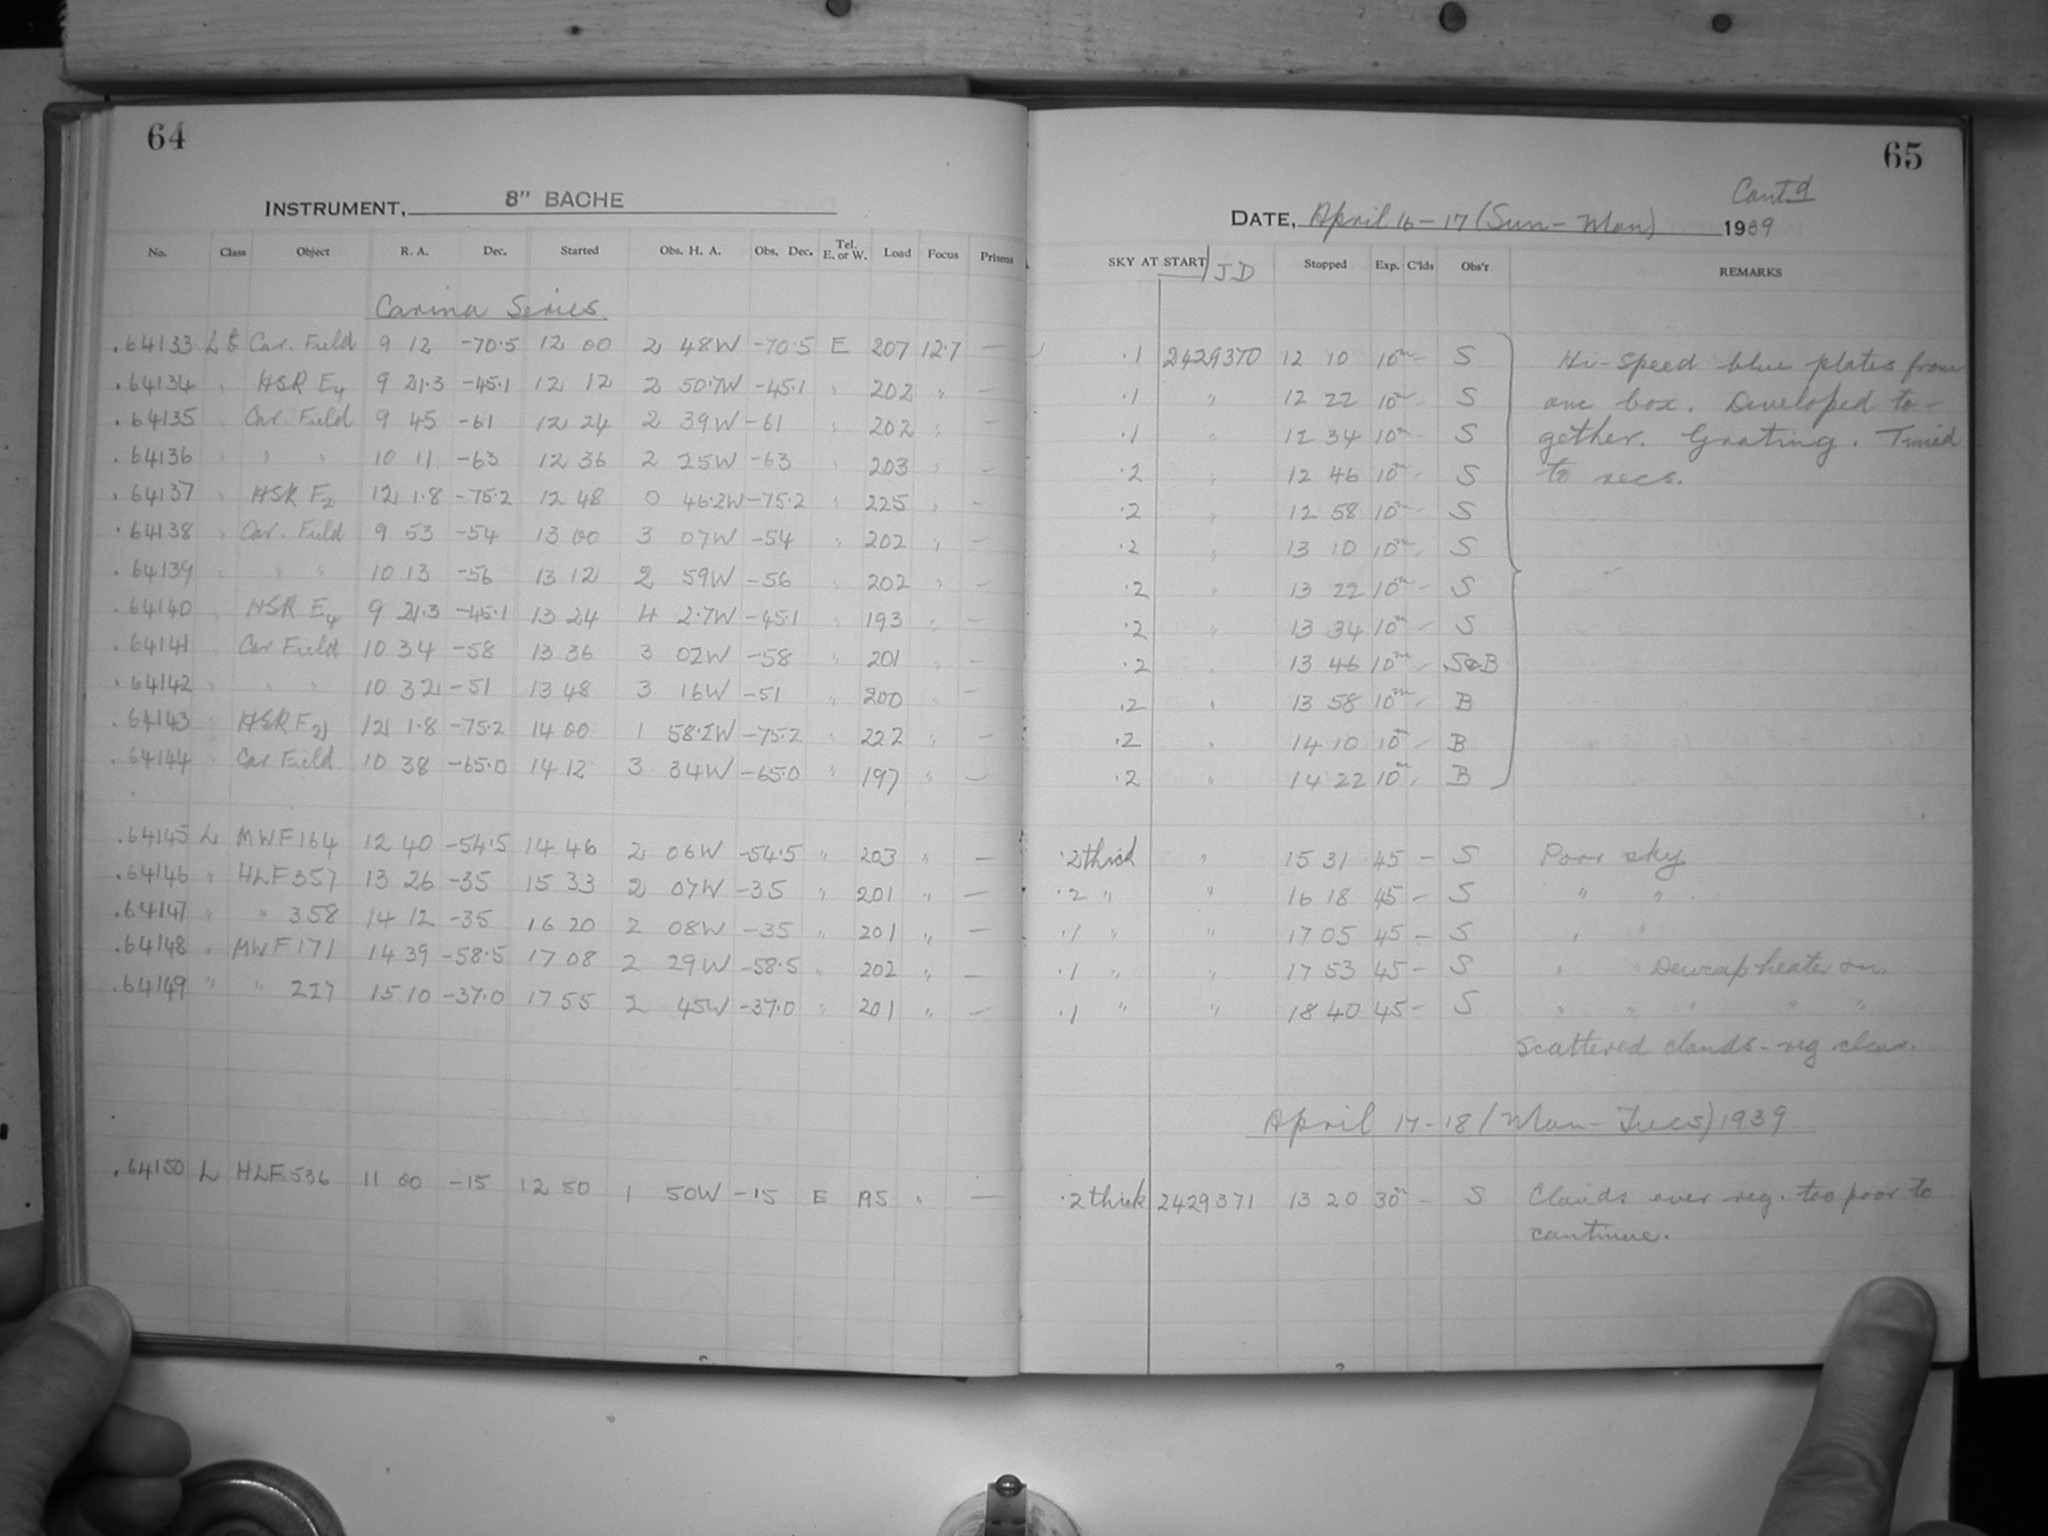 64
INSTRUMENT, 8" BACHE
No. Class Object R. A. Dec. Started Obs. H. A. Obs. Dec. Tel. E. or W. Load Focus Prisms
Carina Series
.64133 L Car. Field 9 12 -70.5 12 00 2 48W -70.5 E 207 12.7 —
.64134 " HSR E4 9 21.3 -45.1 12 12 2 50.7W -45.1 " 202 " —
.64135 Car. Field 9 45 -61 12 24 2 39W -61 " 202 " —
.64136 " " " 10 11 -63 12 36 2 25W -63 " 203 " —
.64137 " HSR F2 12 1.8 -75.2 12 48 0 46.2W -75.2 " 225 " —
.64138 " Car. Field 9 53 -54 13 00 3 07W -54 " 202 " —
.64139 " " " 10 13 -56 13 12 2 59W -56 " 202 " —
.64140 " HSR E4 9 21.3 -45.1 13 24 4 2.7W -45.1 " 193 " —
.64141 Car Field 10 34 -58 13 36 3 02W -58 " 201 " —
.64142 " " " 10 32 -51 13 48 3 16W -51 " 200 " —
.64143 " HSR F2 12 1.8 -75.2 14 00 1 58.2W -75.2 " 222 " —
.64144 " Car Field 10 38 -65.0 14 12 3 34W -65.0 " 197 " —
.64145 L MWF 164 12 40 -54.5 14 46 2 06W -54.5 " 203 " —
.64146 " HLF 357 13 26 -35 15 33 2 07W -35 " 201 " —
.64147 " " 358 14 12 -35 16 20 2 08W -35 " 201 " —
.64148 " MWF 171 14 39 -58.5 17 08 2 29W -58.5 " 202 " —
.64149 " " 227 15 10 -37.0 17 55 2 45W -37.0 " 201 " —
.64150 L HLF 536 11 00 -15 12 50 1 50W -15 E 195 " —
65
Cont'd
DATE, April 16-17 (Sun-Mon) 1939
SKY AT START / JD Stopped Exp. C'lds Obs'r REMARKS
.1 2429370 12 10 10m - S Hi-Speed blue plates from
.1 " 12 22 10m - S one box. Developed to-
.1 " 12 34 10m - S gether. Grating. Timed
.2 " 12 46 10m - S to secs.
.2 " 12 58 10m - S
.2 " 13 10 10m - S
.2 " 13 22 10m - S
.2 " 13 34 10m - S
.2 " 13 46 10m - S&B
.2 " 13 58 10m - B
.2 " 14 10 10m - B
.2 " 14 22 10m - B
.2 thick " 15 31 45 - S Poor sky
.2 " " 16 18 45 - S " "
.1 " " 17 05 45 - S " "
.1 " " 17 53 45 - S " " Dewcap heater on.
.1 " " 18 40 45 - S " " " " "
Scattered clouds - reg clear.
April 17-18 (Mon-Tues) 1939
.2 thick 2429371 13 20 30m - S Clouds over reg. too poor to
continue.